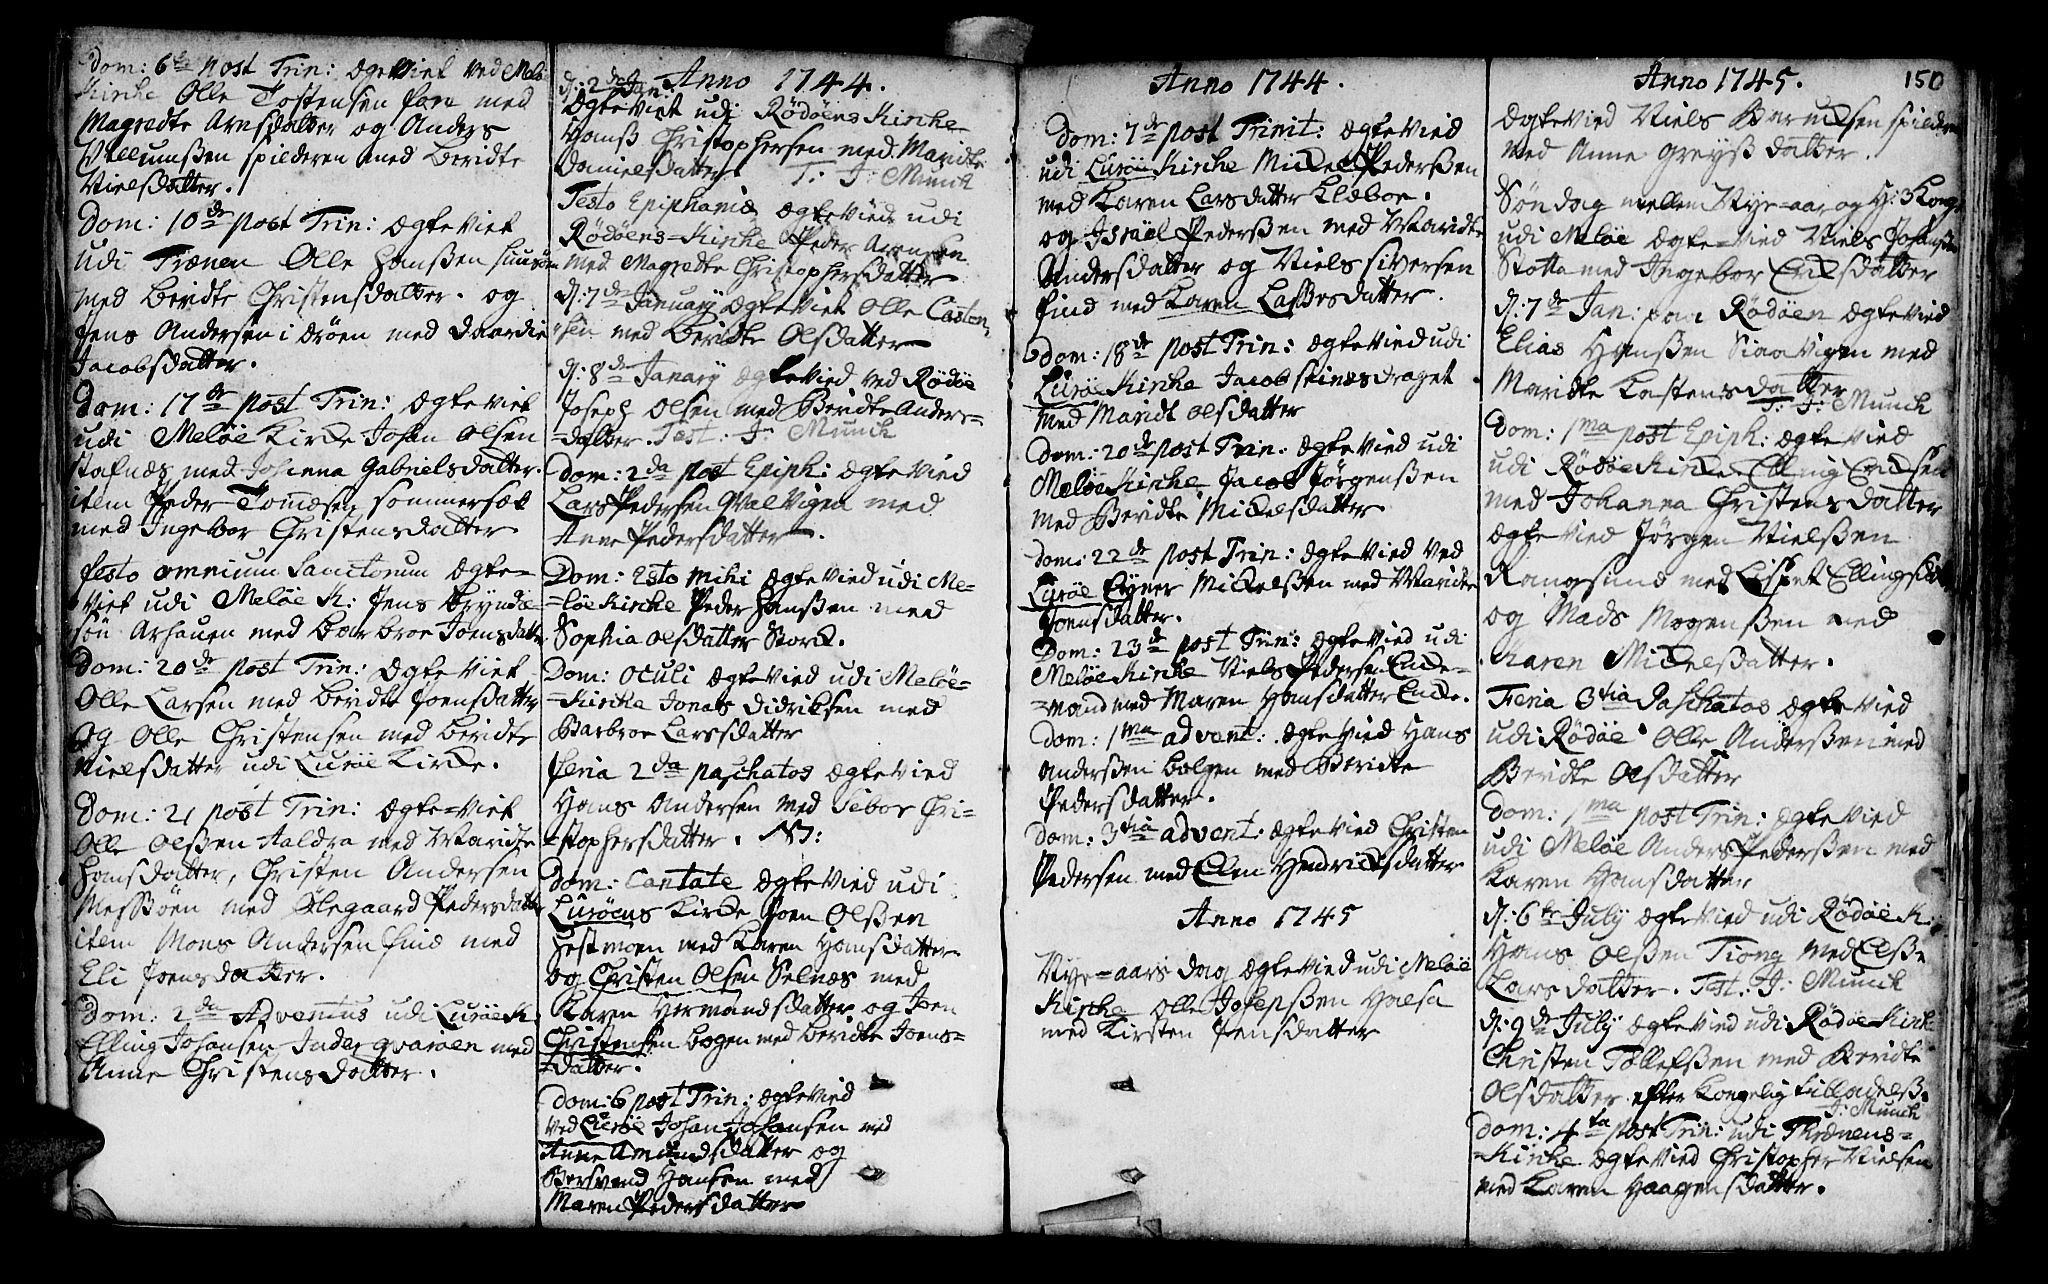 Dom: 6te post Trin: ægteviet ved Melø
Kirche Olle Tostensen fore med
Magredte Arnsdatter og Anders
Villumsen spilderen med Beridte
Nielsdatter.
Dom: 10de post Trin: Ægteviet
udi Trænen Olle Hanssen
med Beridte Christensdatter. og
Jens Andersen i Drøen med Daardie
Jacobsdatter.
Dom: 17de post Trin: Ægteviet
udi Meløe Kirche Johan Olsen
stafnæs med Johanna Gabrielsdatter.
item Peder Tomæsen sommersæt
med Ingebor Christensdatter
festo omnium Sanctorum Ægte-
viet udi Meløe K: Jens Bryndæ-
søn Arhauen med Barbroe Joensdatter
Dom: 20de post Trin: Ægteviet
Olle Larsen med Beridte Joensdatter
Og Olle Christensen med Beridte
Nielsdatter udi Lurøe Kirche.
Dom: 21 post Trin: Ægte-viet
Olle Olssen Aaldra med Maridte
Hansdatter, Christen Andersen
Messøen med Ølegaard Pedersdatter
item Mons Andersen find med
Eli Joensdatter.
Dom: 2da Adventus udi Lurøe K:
Elling Johansen Inder qvarøen med
Anne Christensdatter.
Anno 1744.
d: 2de Jan:
Ægteviet udi Rødøens Kirche
Hans Christophersen med Maridte
Danielsdatter T: J: Munch
Festo Epiphaniæ Ægteviede udi
Rødøens-Kirche Peder Arensen
med Magredte Christophersdatter
d: 7de January Ægteviet Olle Casten-
sen med Beridte Olsdatter
d: 8de Janary Ægtevied ved Rødøe
Joseph Olsen med Beridte Anders-
=datter. Test: J: Munch
Dom: 2da post Epiph: Ægtevied
Lars Pedersen Qvalvigen med
Anne Pedersdatter.
Dom: Esto mihi Ægtevied udi Me-
=løe Kirche Peder Hanssen med
Sophia Olsdatter Storck.
Dom: Oculi Ægtevied udi Meløe-
=Kirche Jonas Didriksen med
Barbroe Larsdatter
Feria 2da paschatos Ægtevied
Hans Andersen med Sebor Chri-
=stophersdatter. NB:
Dom: Cantate Ægtevied udi
Lurøens Kirche Joen Olssen
Hestmoen med Karen Hansdatter
og Christen Olsen Selnæs med
Karen Hermandsdatter og Joen
Christensen bogen med Beridte Joens-
=datter.
Dom: 6 post Trin: Ægtevied
ved Lurøe Johan Johansen med
Anne Amundsdatter og
Bersvend Hansen med
Maren Pedersdatter
Anno 1744.
Dom: 7de post Trinit: Ægtevied
udi Lurøe Kirche Mickel Pederssen
med Karen Larsdatter Klæboe.
og Israel Pederssen med Maridte
Andersdatter og Niels Siversen
find med Karen Lassesdatter.
Dom: 18de post Trin: Ægtevied udi
Lurøe Kirche Jacob skinæsdraget
med Maridt Olsdatter
Dom: 20de post Trin: Ægtevied udi
Meløe Kirche Jacob Jørgenssen
med Beridte Mickelsdatter
Dom: 22de post Trin: Ægtevied ved
Lurøe Eyner Mickelssen med Maridte
Joensdatter.
Dom: 23de post Trin: Ægtevied udi
Meløe Kirche Niels Pedersen Ende-
=vand med Maren Hansdatter Ende.
Dom: 1ma advent: Ægtevied Hans
Anderssen bolgen med Beridte
Pedersdatter.
Dom: 3tia advent: Ægtevied Christen
Pedersen med Elen Hendrichsdatter
Anno 1745
Nye=aars dag Ægtevied udi Meløe
Kirche Olle Josepssen Halsa
med Kirsten Jensdatter
Anno 1745. 150
Ægtevied Niels spilderen
med Anne Greÿssdatter.
Søndag mellem Nye-aar og H: 3 Kong:
udi Meløe Ægte-vied Niels Johansen
Støtta med Ingebor Ericksdatter
d: 7de Jan: paa Rødøen Ægtevied
Elias Hanssen Siaavigen med
Maridte Kastensdatter
T: J: Munch
Dom: 1ma post Epiph: Ægtevied
udi Rødøe Kirche Elling Ericksen
med Johanna Christensdatter
Ægtevied Jørgen Nielssen
Rangsund med Lisbet Ellingsdat:
og Mads Mogenssen med
Karen Mickelsdatter.
Feria 3tia Paschatos Ægtevied
udi Rødøe Olle Anderssen med
Beridte Olsdatter
Dom: 1ma post Trin: Ægtevied
udi Meløe Anders Pederssen med
Karen Hansdatter
d: 6te July Ægtevied udi Rødøe K:
Hans Olssen Tiong med Elsse
Larsdatter. Test: J: Munch
d: 9de July Ægtevied udi Rødøe Kirch
Christen Tollefssen med Beridte
Olsdatter efter Kongelig tilladelsse.
J: Munch
Dom: 4ta post Trin: udi Thrænens-
=Kirche Ægtevied Christopher Nielsen
med Karen Haagensdatter.